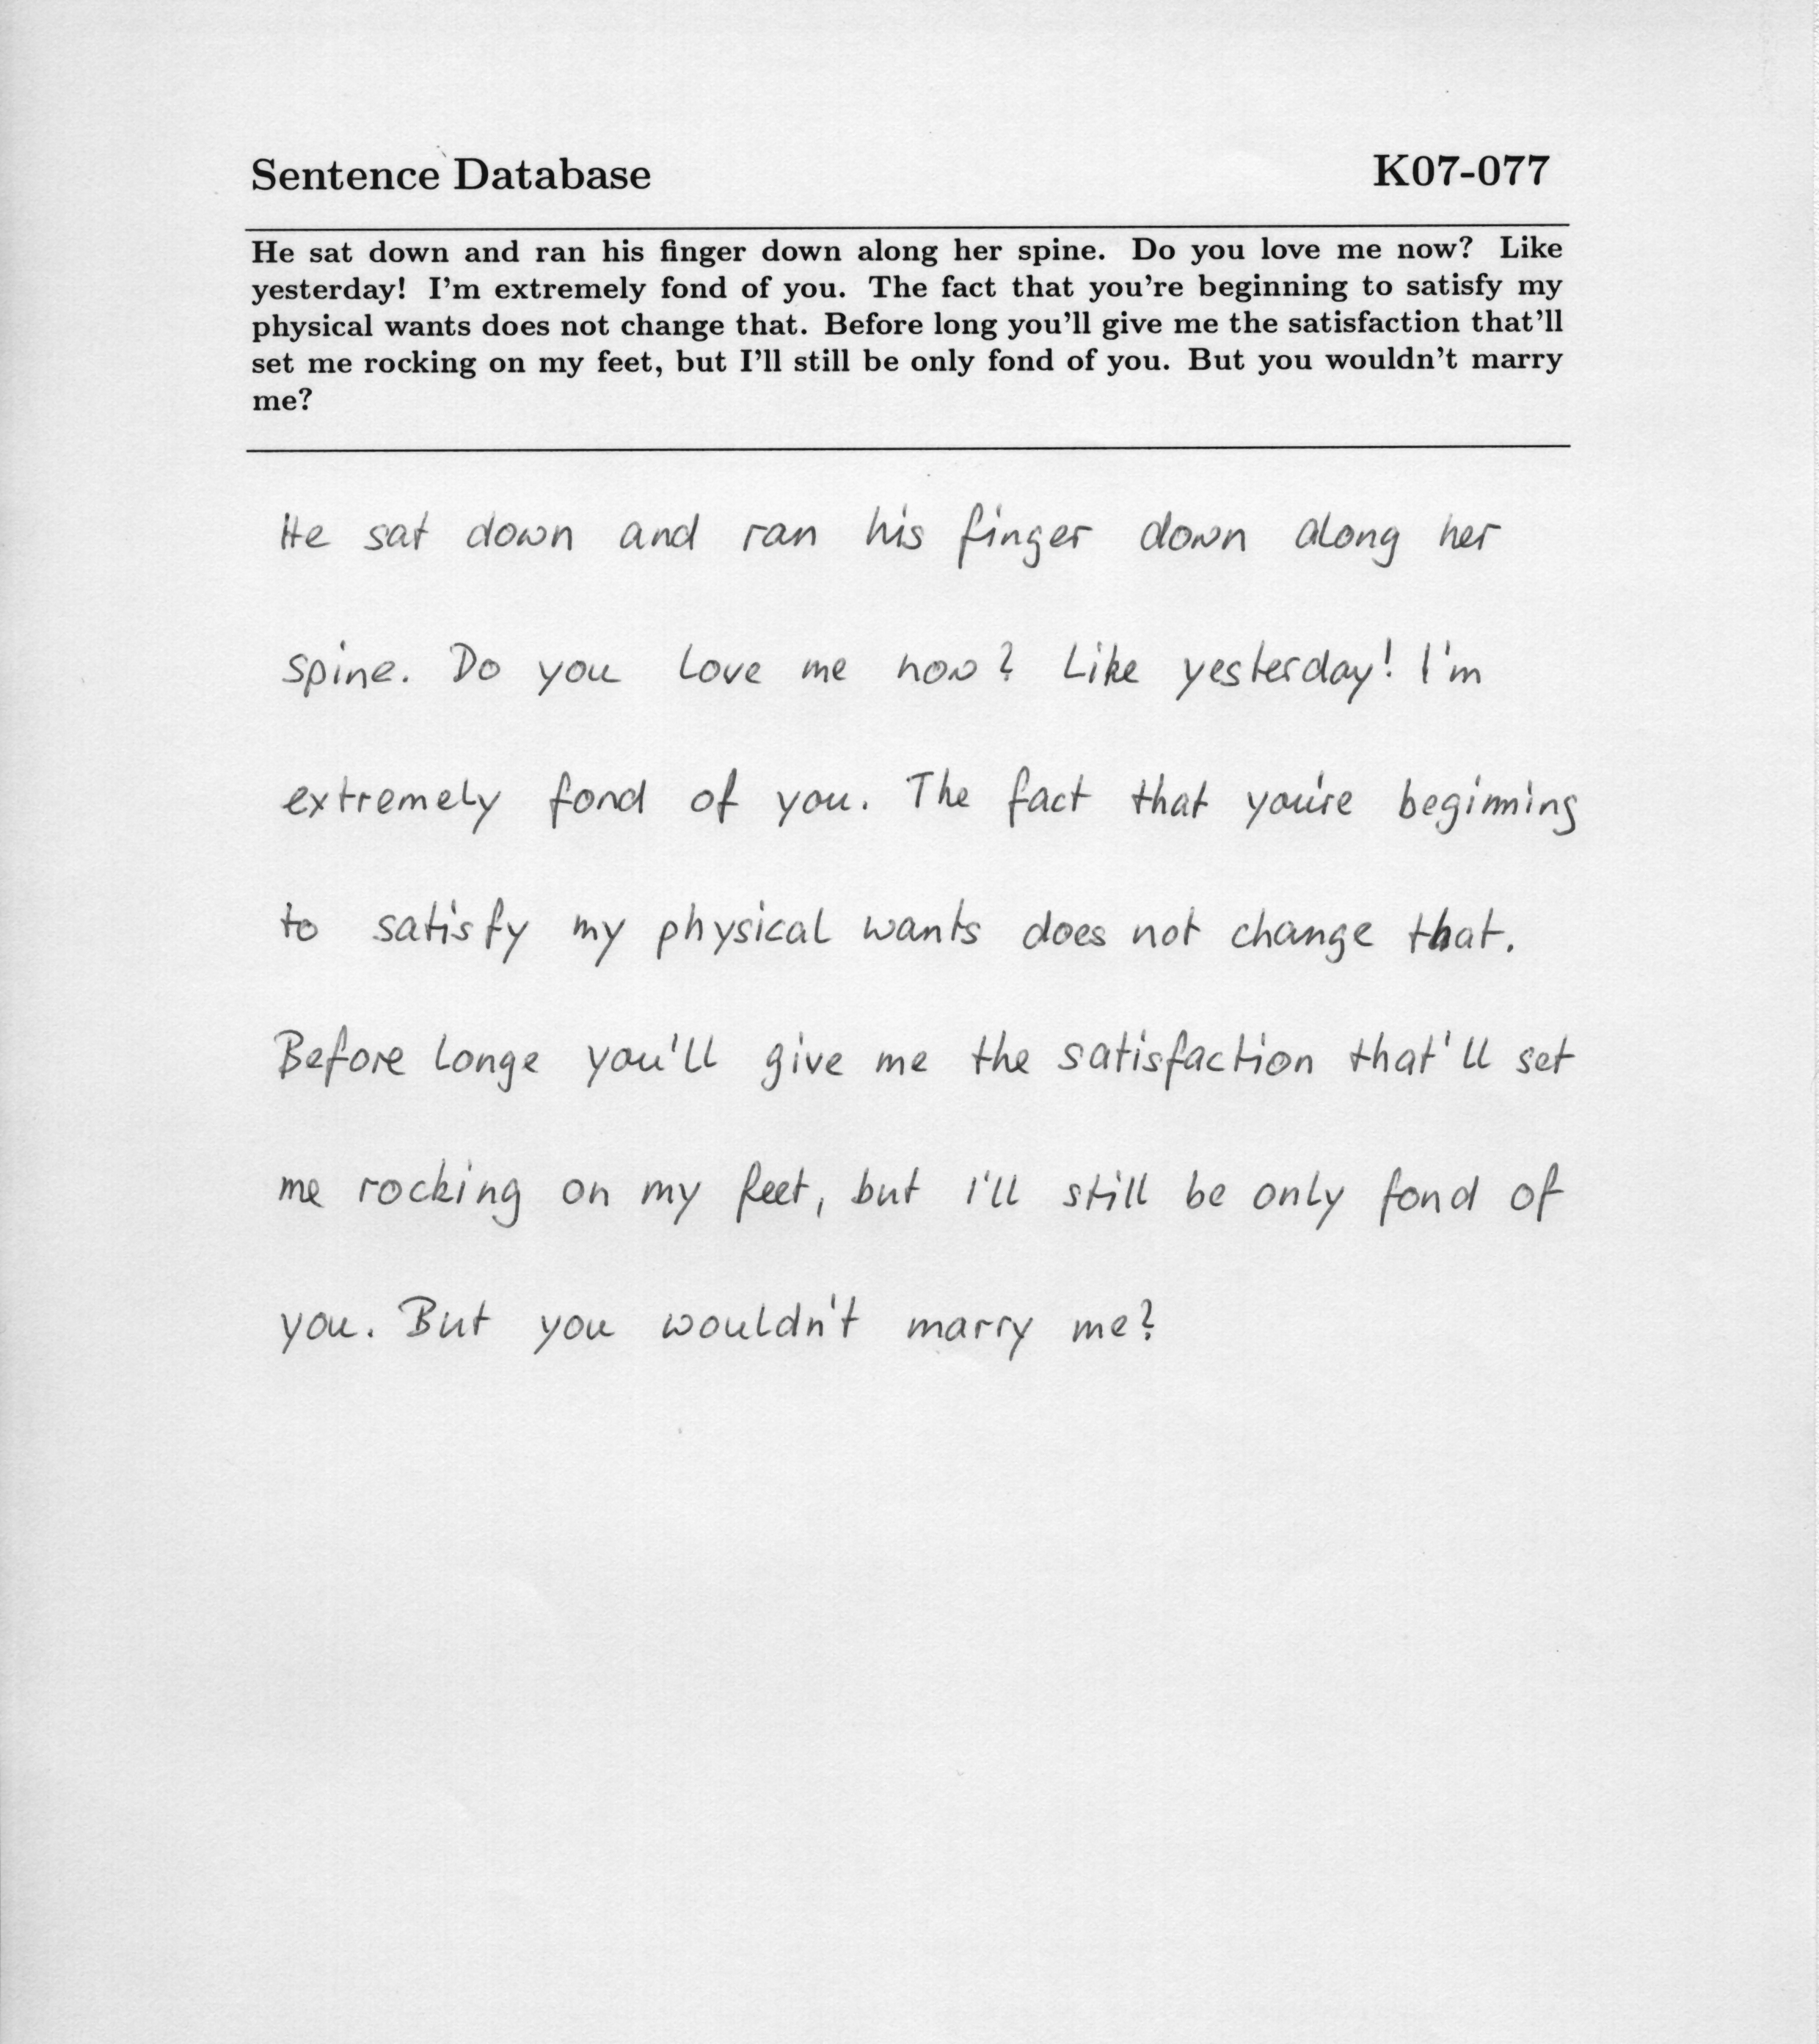 Sentence Database K07-077
He sat down and ran his finger down along her spine. Do you love me now? Like
yesterday! I'm extremely fond of you. The fact that you're beginning to satisfy my
physical wants does not change that. Before long you'll give me the satisfaction that'll
set me rocking on my feet, but I'll still be only fond of you. But you wouldn't marry
me?
He sat down and ran his finger down along her
spine. Do you love me now? Like yesterday! I'm
extremely fond of you. The fact that you're beginning
to satisfy my physical wants does not change that.
Before longe you'll give me the satisfaction that'll set
me rocking on my feet, but I'll still be only fond of
you. But you wouldn't marry me?